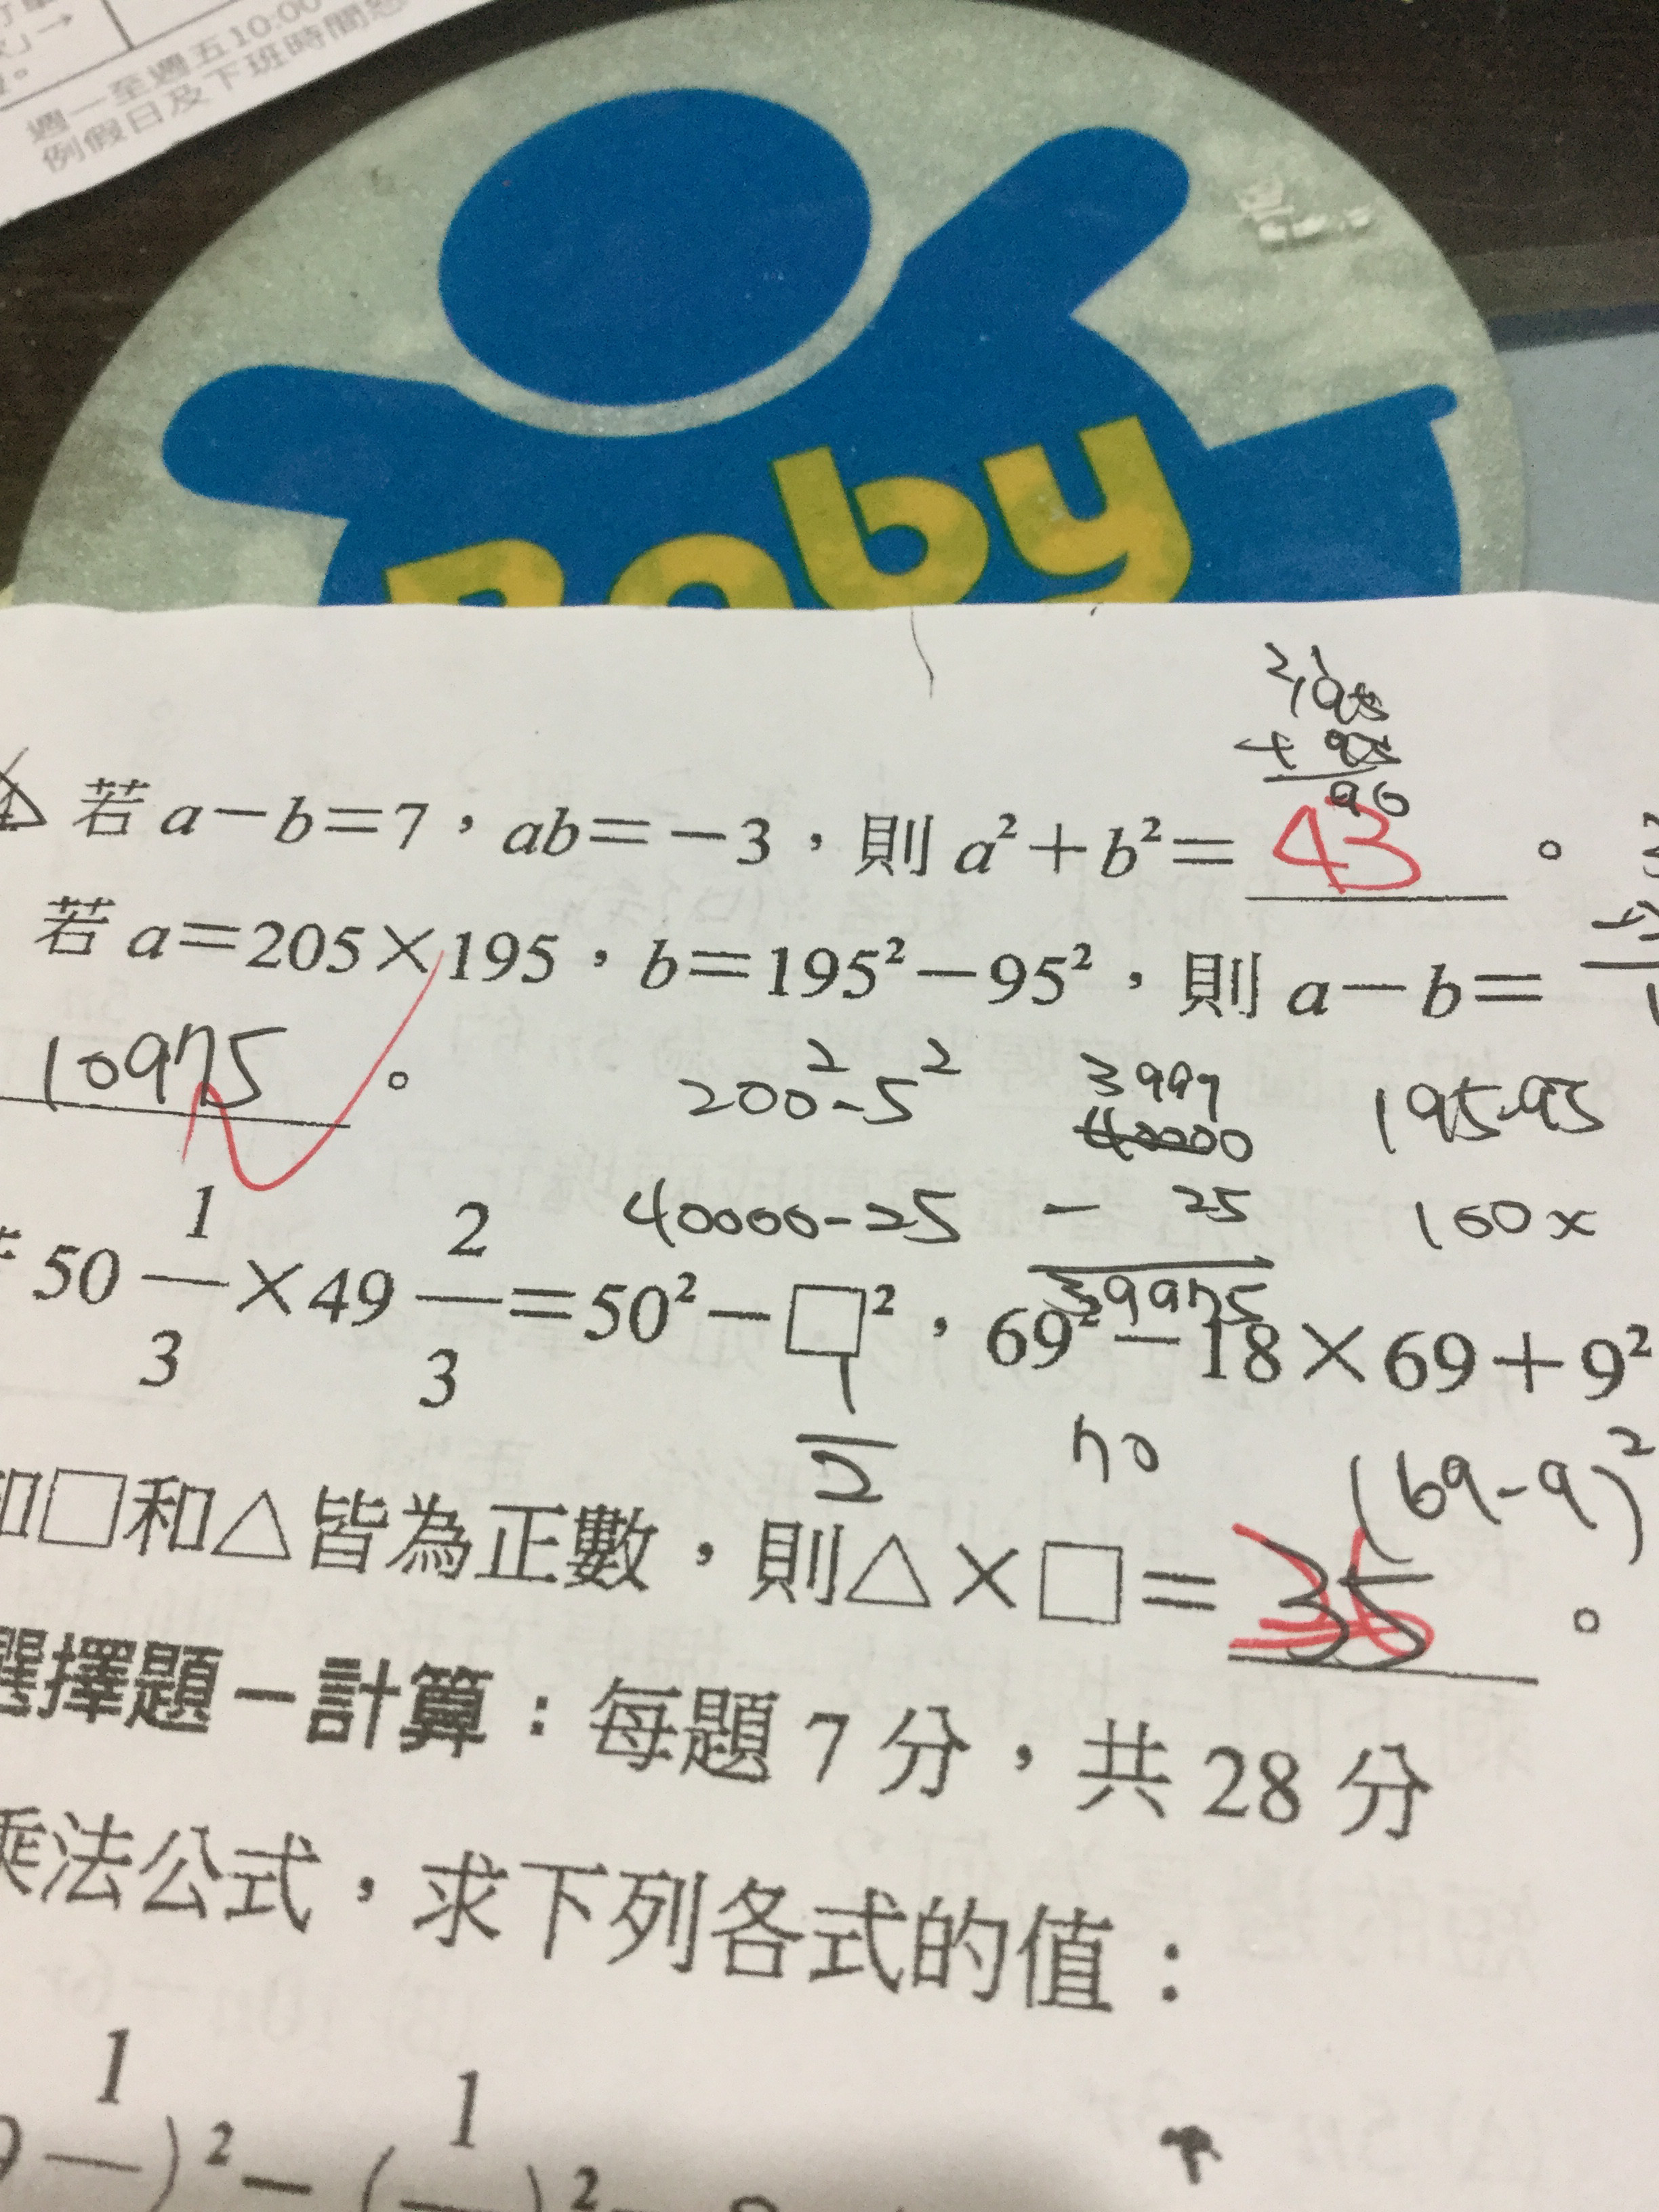 週一至週五10:00
例假日及下班時間
Baby
2 1
195
+ 95
90
若 a－b＝7，ab＝－3，則 a²＋b²＝ 43 。
若 a＝205×195，b＝195²－95²，則 a－b＝
10975 。
200²-5² 3999 195-95
40000
40000-25 - 25 100x
39975
50 1/3 ×49 2/3 ＝50²－□²，69²－18×69＋9²
1/2 70 (69-9)²
和□和△皆為正數，則△×□＝ 35 。
選擇題－計算：每題 7 分，共 28 分
乘法公式，求下列各式的值：
1 1
)²－( )²